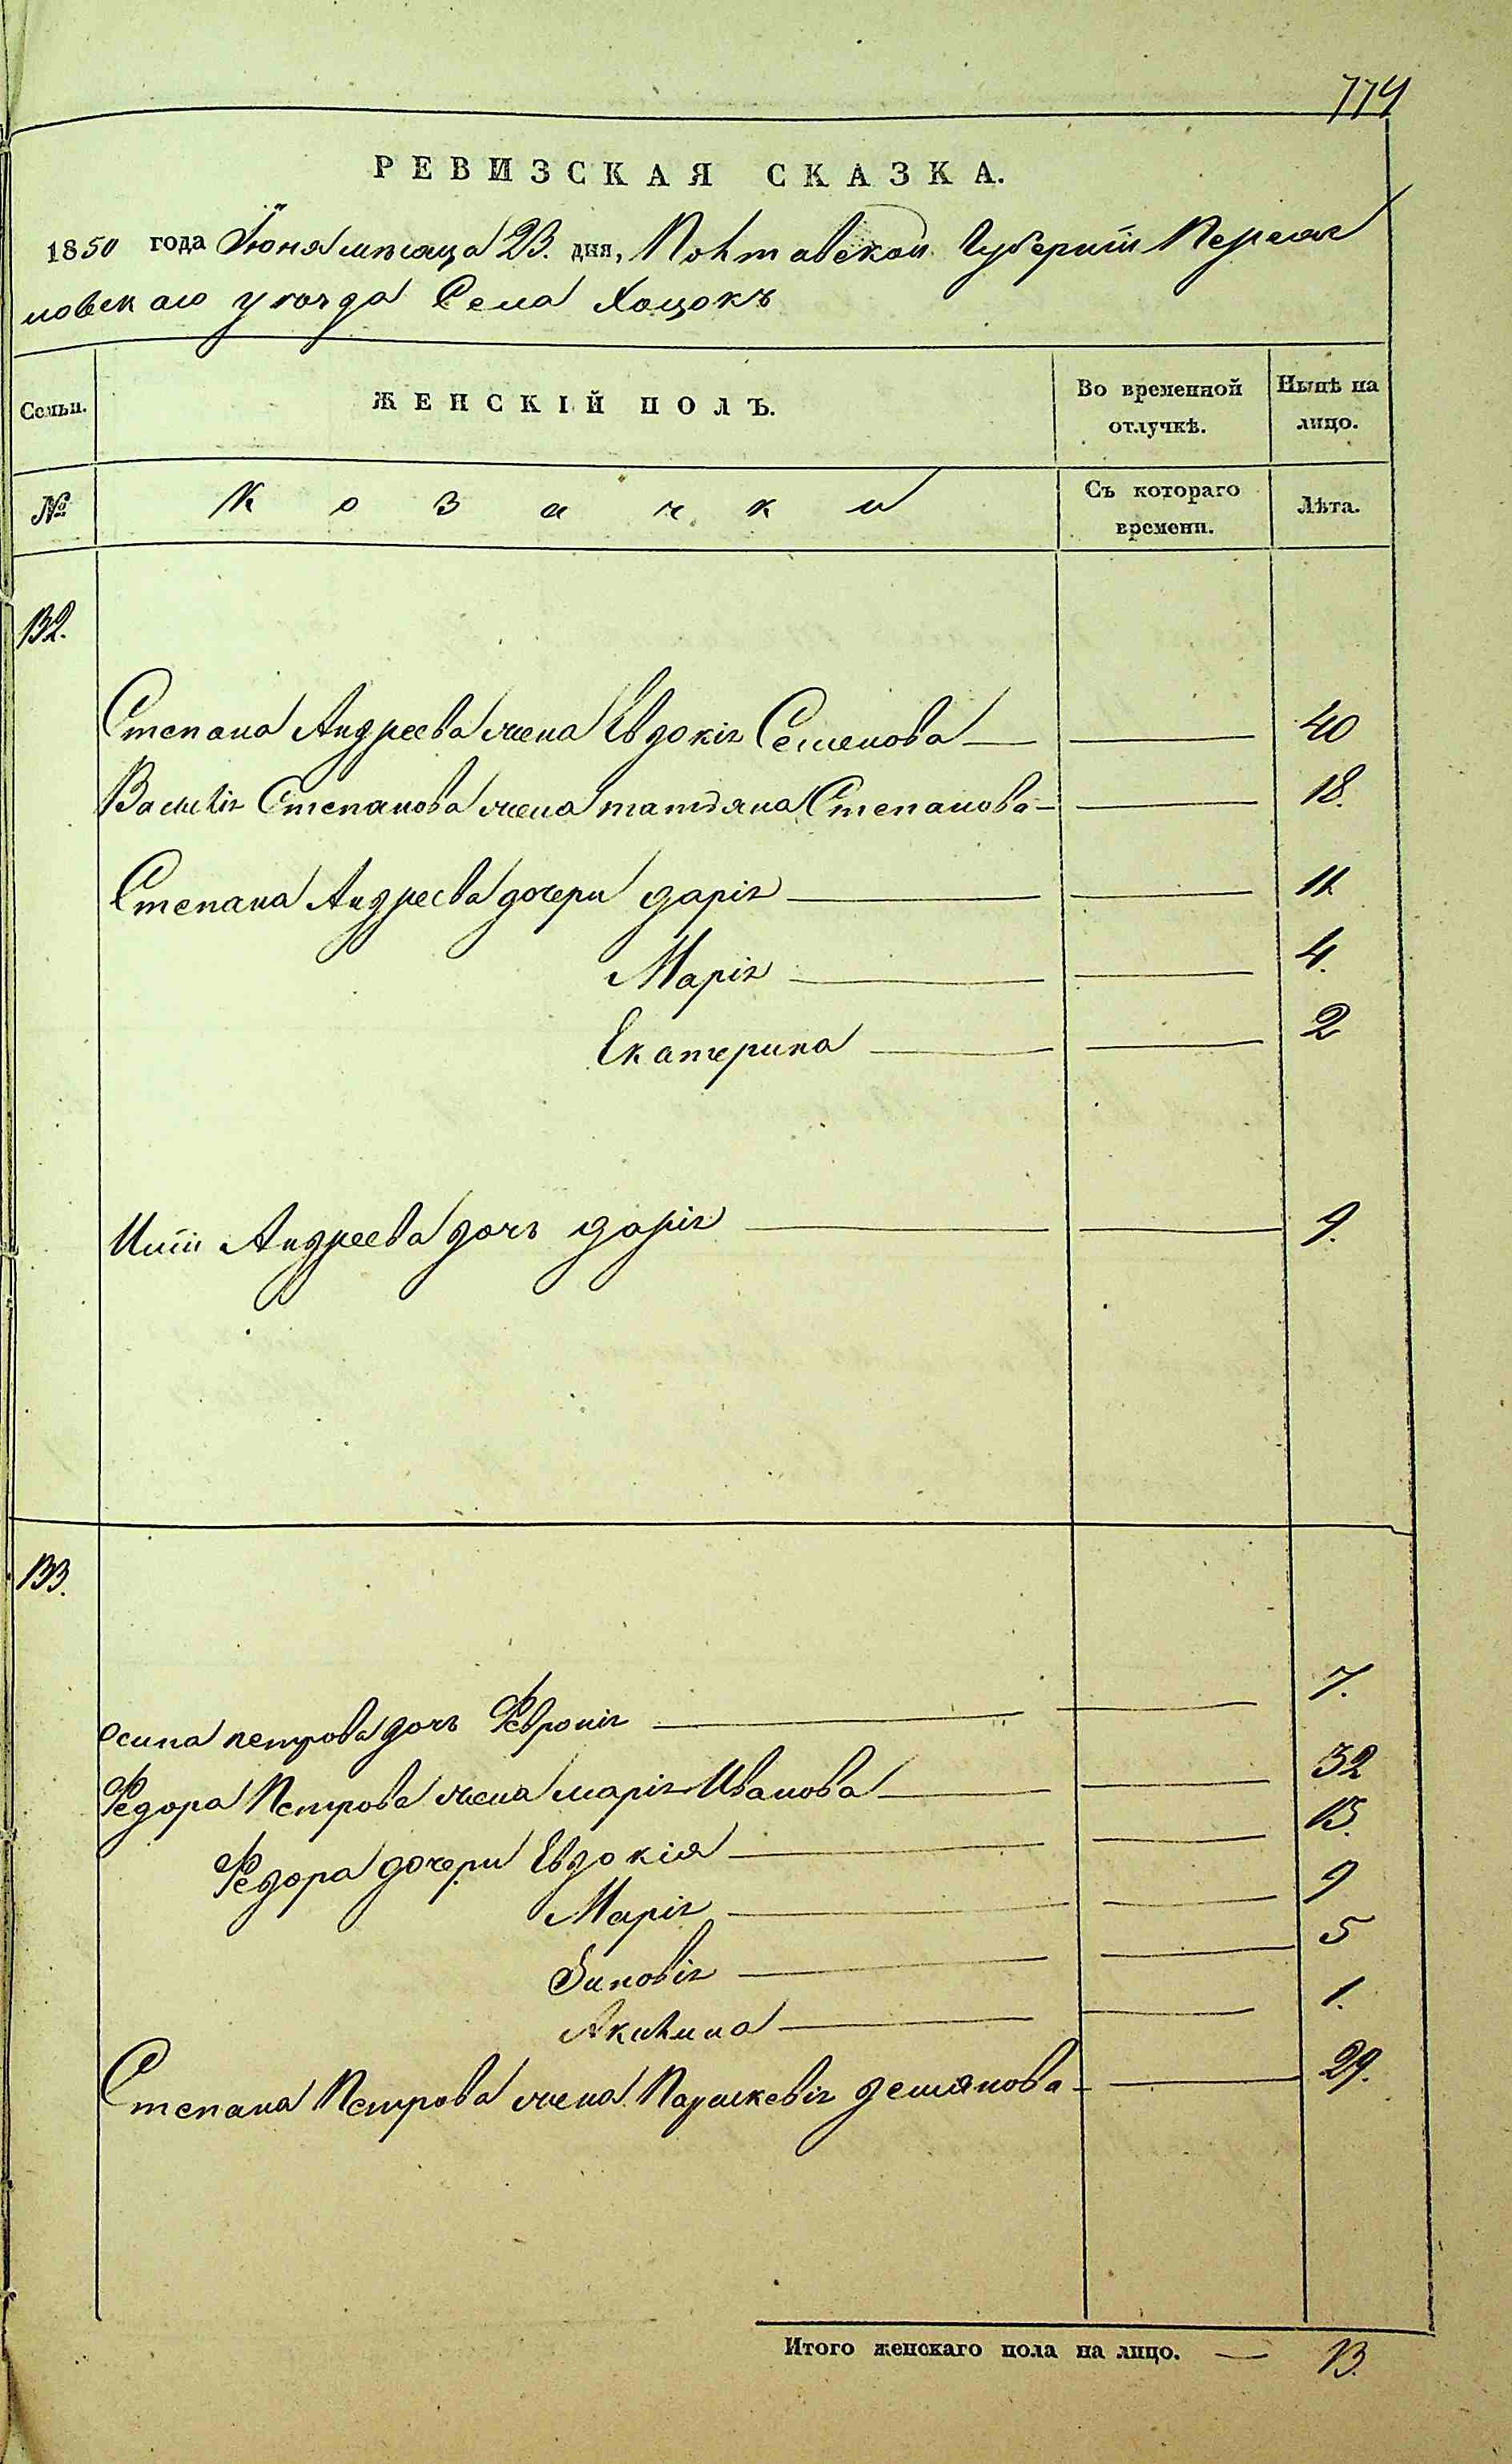 774
РЕВИЗСКАЯ СКАЗКА.
1850 года Июня месяца 23. дня, Полтавской Губернии Переяс
ловскаго уезда Села Хоцокъ
Семьи. ЖЕНСКІЙ ПОЛЪ. Во временной отлучкѣ. Нынѣ на лицо.
№ Козачки Съ котораго времени. Лѣта.
132.
Степана Андреева жена Евдокія Семенова — — 40
Василія Степанова жена татьяна Степанова — — 18.
Степана Андреева дочери дарія — — 11.
Марія — — 4.
Екатерина — — 2
Андреева дочь дарія — — 9.
133.
осипа петрова дочь Февронія — — 7.
Федора Петрова жена марія Иванова — — 32
Федора дочери Евдокія — — 13.
Марія — — 9
Зиновія — — 5
Акилина — — 1.
Степана Петрова жена Параскевія демянова — — 29.
Итого женскаго пола на лицо. — 13.